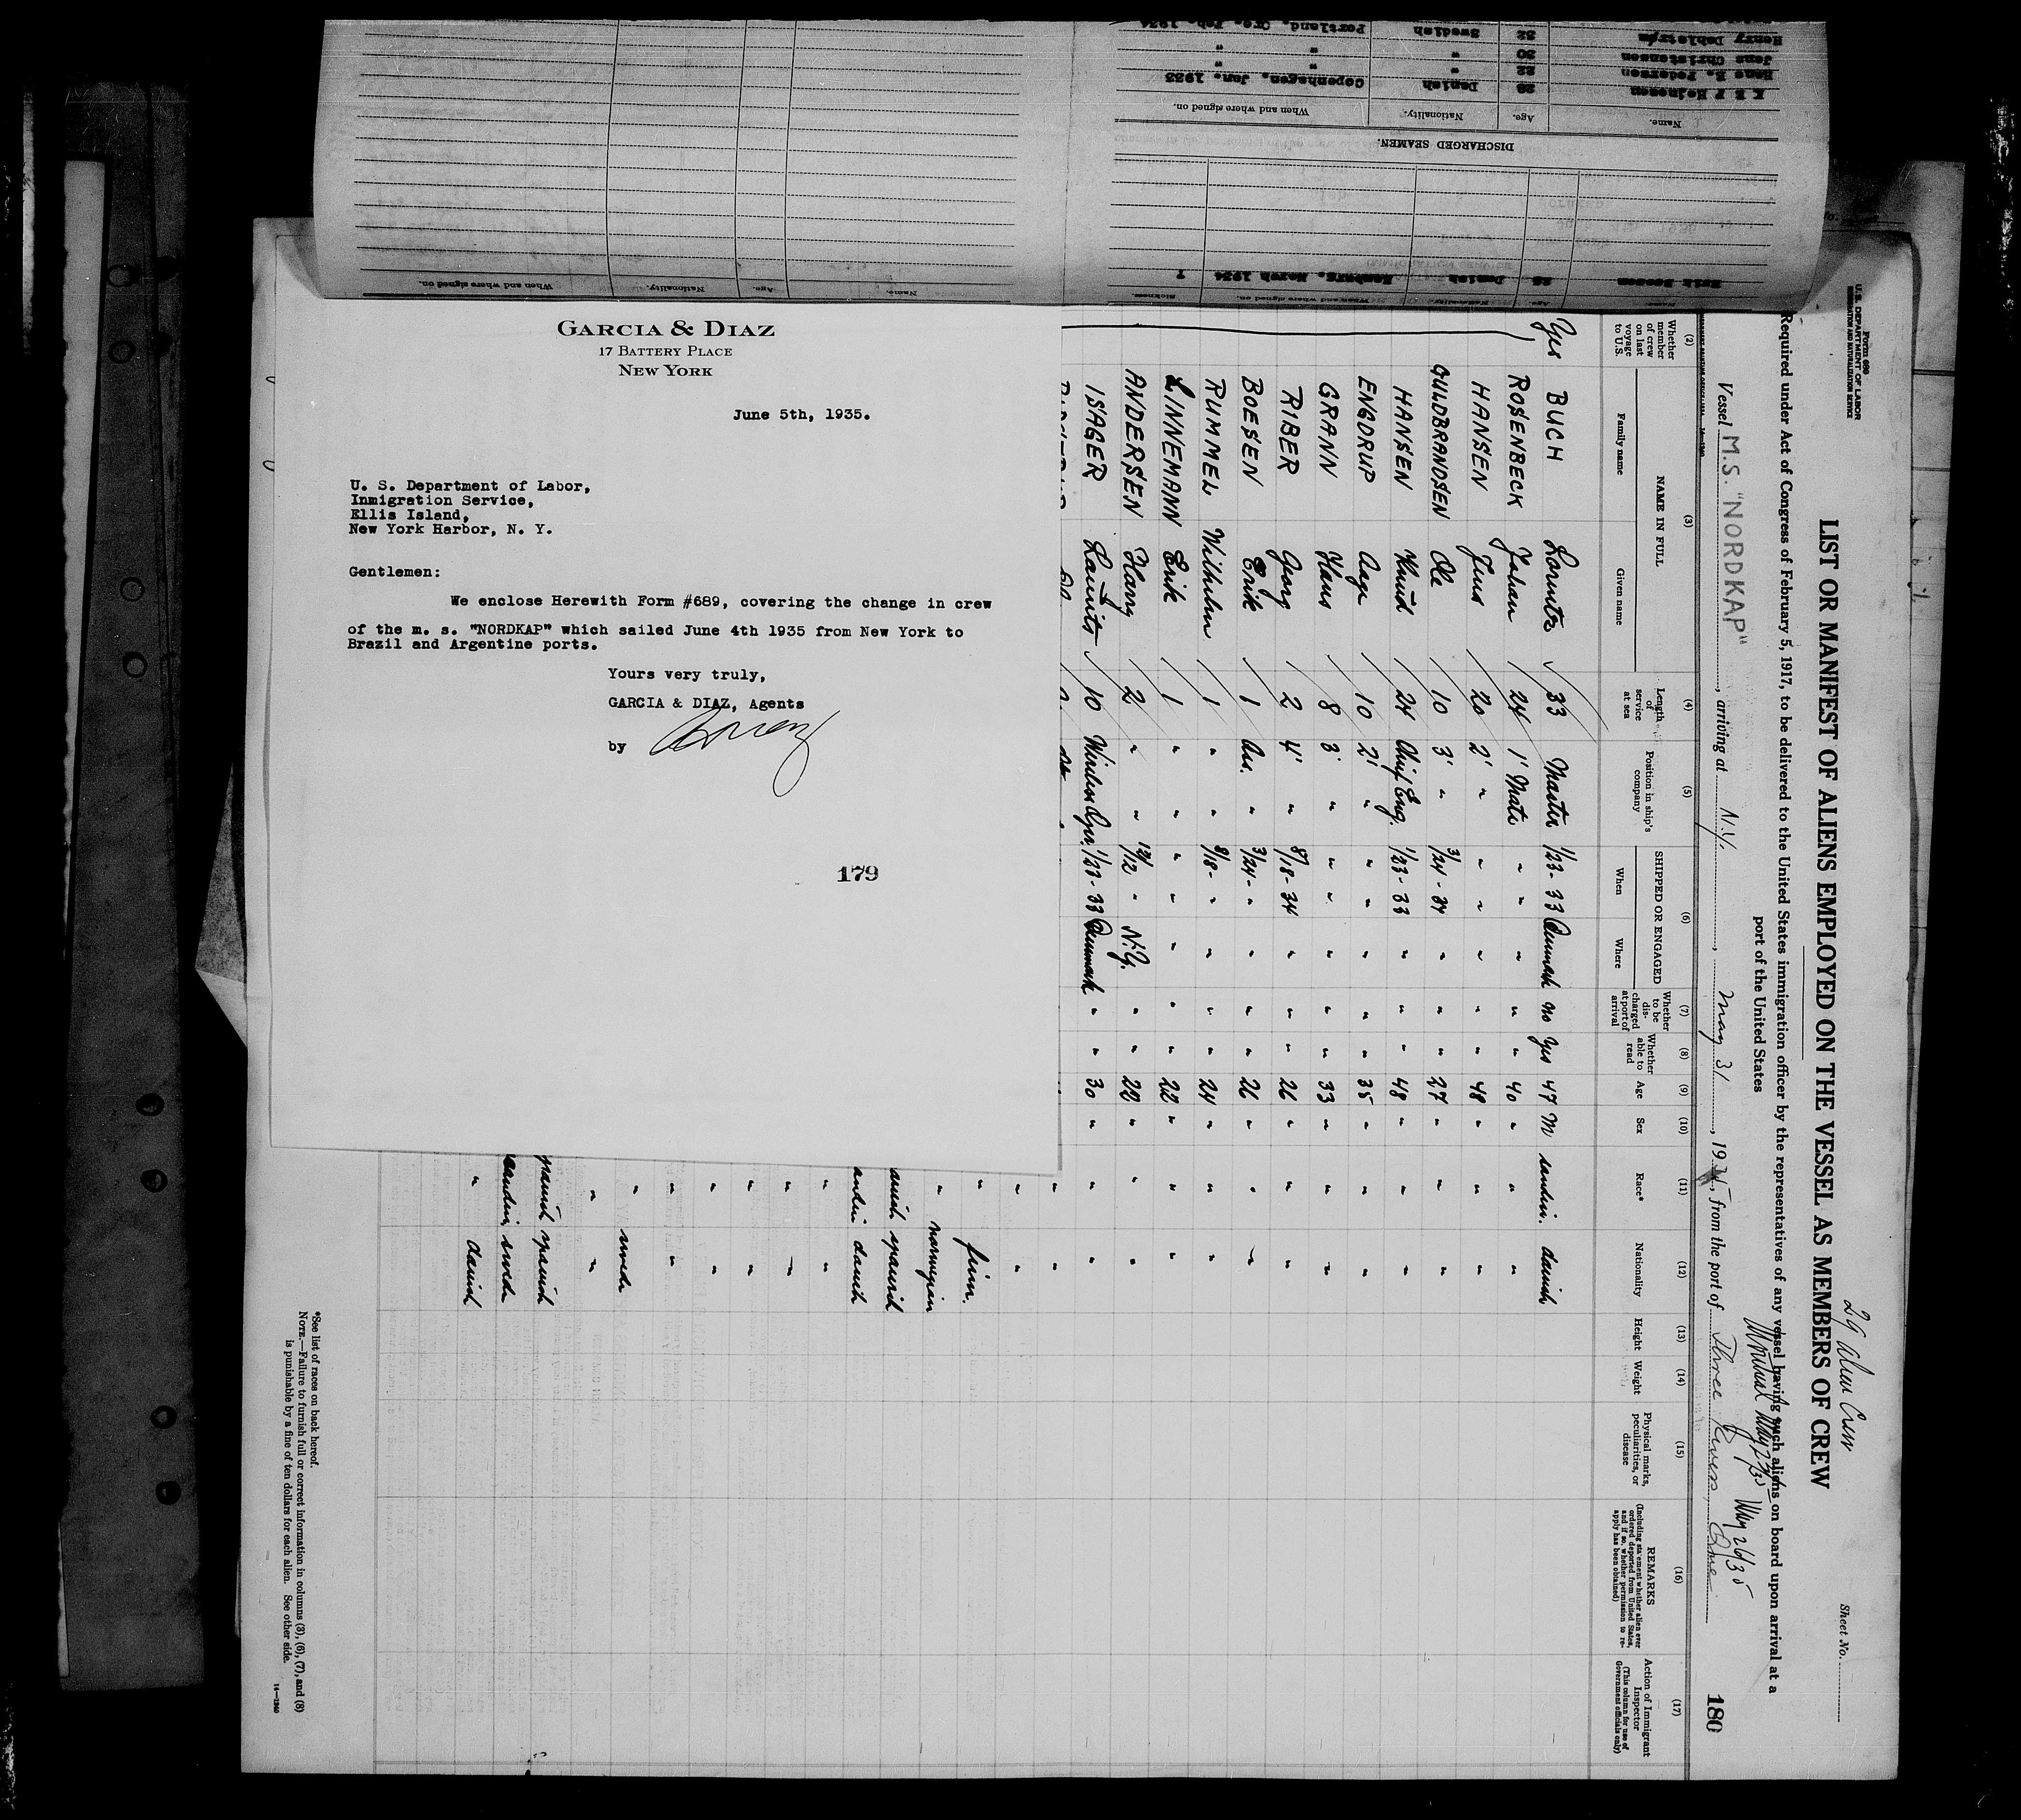 GARCIA & DIAZ
17 BATTERY PLACE
NEW YORK
June 5th, 1935.
U. S. Department of Labor,
Inmigration Service,
Ellis Island,
New York Harbor, N. Y.
Gentlemen:
We enclose Herewith Form #689, covering the change in crew
of the m. s. "NORDKAP" which sailed June 4th 1935 from New York to
Brazil and Argentine ports.
Yours very truly,
GARCIA & DIAZ, Agents
by
179
Form 689
U. S. DEPARTMENT OF LABOR
IMMIGRATION AND NATURALIZATION SERVICE
29 alien Crew
Sheet No.
LIST OR MANIFEST OF ALIENS EMPLOYED ON THE VESSEL AS MEMBERS OF CREW
Required under Act of Congress of February 5, 1917, to be delivered to the United States immigration officer by the representatives of any vessel having such aliens on board upon arrival at a
port of the United States
Vessel M.S. "NORDKAP", arriving at N.Y., May 31, 1935, from the port of Three Rivers
180
(2) (3) (4) (5) (6) (7) (8) (9) (10) (11) (12) (13) (14) (15) (16) (17)
Whether member of crew on last voyage to U.S.
NAME IN FULL
Family name
Given name
Length of service at sea
Position in ship's company
SHIPPED OR ENGAGED
When
Where
Whether to be discharged at port of arrival
Whether able to read
Age
Sex
Race*
Nationality
Height
Weight
Physical marks, peculiarities, or disease
REMARKS
(Including statement whether alien ever ordered deported from United States, and if so, whether permission to reapply has been obtained)
Action of Immigrant Inspector
(This column for use of Government officials only)
Yes BUCH Lorentz 33 Master 1/23-33 Danmark no Yes 47 M scandin. danish
ROSENBECK Johan 24 1' Mate " " " " 40 " " "
HANSEN Jens 20 2' " " " " " 48 " " "
GULDBRANDSEN Ole 10 3' " 3/24-34 " " " 27 " " "
HANSEN Knud 24 Chif Eng. 1/23-33 " " " 48 " " "
ENGDRUP Aage 10 2' " " " " " 35 " " "
GRANN Hans 8 3' " " " " " 33 " " "
RIBER Georg 2 4' " 8/18-34 " " " 26 " " "
BOESEN Erik 1 Ass. " 3/24-" " " " 26 " " "
RUMMEL Wilhelm 1 " " 8/18-" " " " 24 " " "
LINNEMANN Erik 1 " " " " " " " 22 " " "
ANDERSEN Harry 2 " " 12/12 " N.Y. " " 22 " " "
ISAGER Laurits 10 Wireless Opr. 1/23-33 Danmark " " 30 " " "
" "
" "
" finn.
" norwegian
spanish
danish
" "
" "
" "
" "
" "
" swede
" "
spanish
swede
" danish
*See list of races on back hereof.
NOTE.—Failure to furnish full or correct information in columns (3), (6), (7), and (8)
is punishable by a fine of ten dollars for each alien. See other side.
14—1240
Name. Age. Nationality. When and where signed on. Sickness.
Erik Boesen 26 Danish Hamburg, March 1934
Name. Age. Nationality. When and where signed on.
DISCHARGED SEAMEN.
Name. Age. Nationality. When and where signed on.
K E F Heinesen 28 Danish Copenhagen, Jan. 1933
Hans E. Pedersen 22 " " "
Jens Christensen 30 " " "
Henry Dahlstrøm 32 Swedish Portland, Ore. Feb. 1934